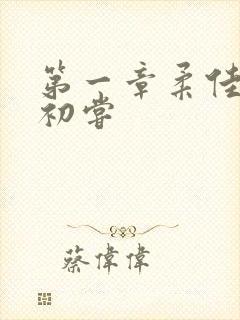 第一章柔佳
初尝
蔡偉偉